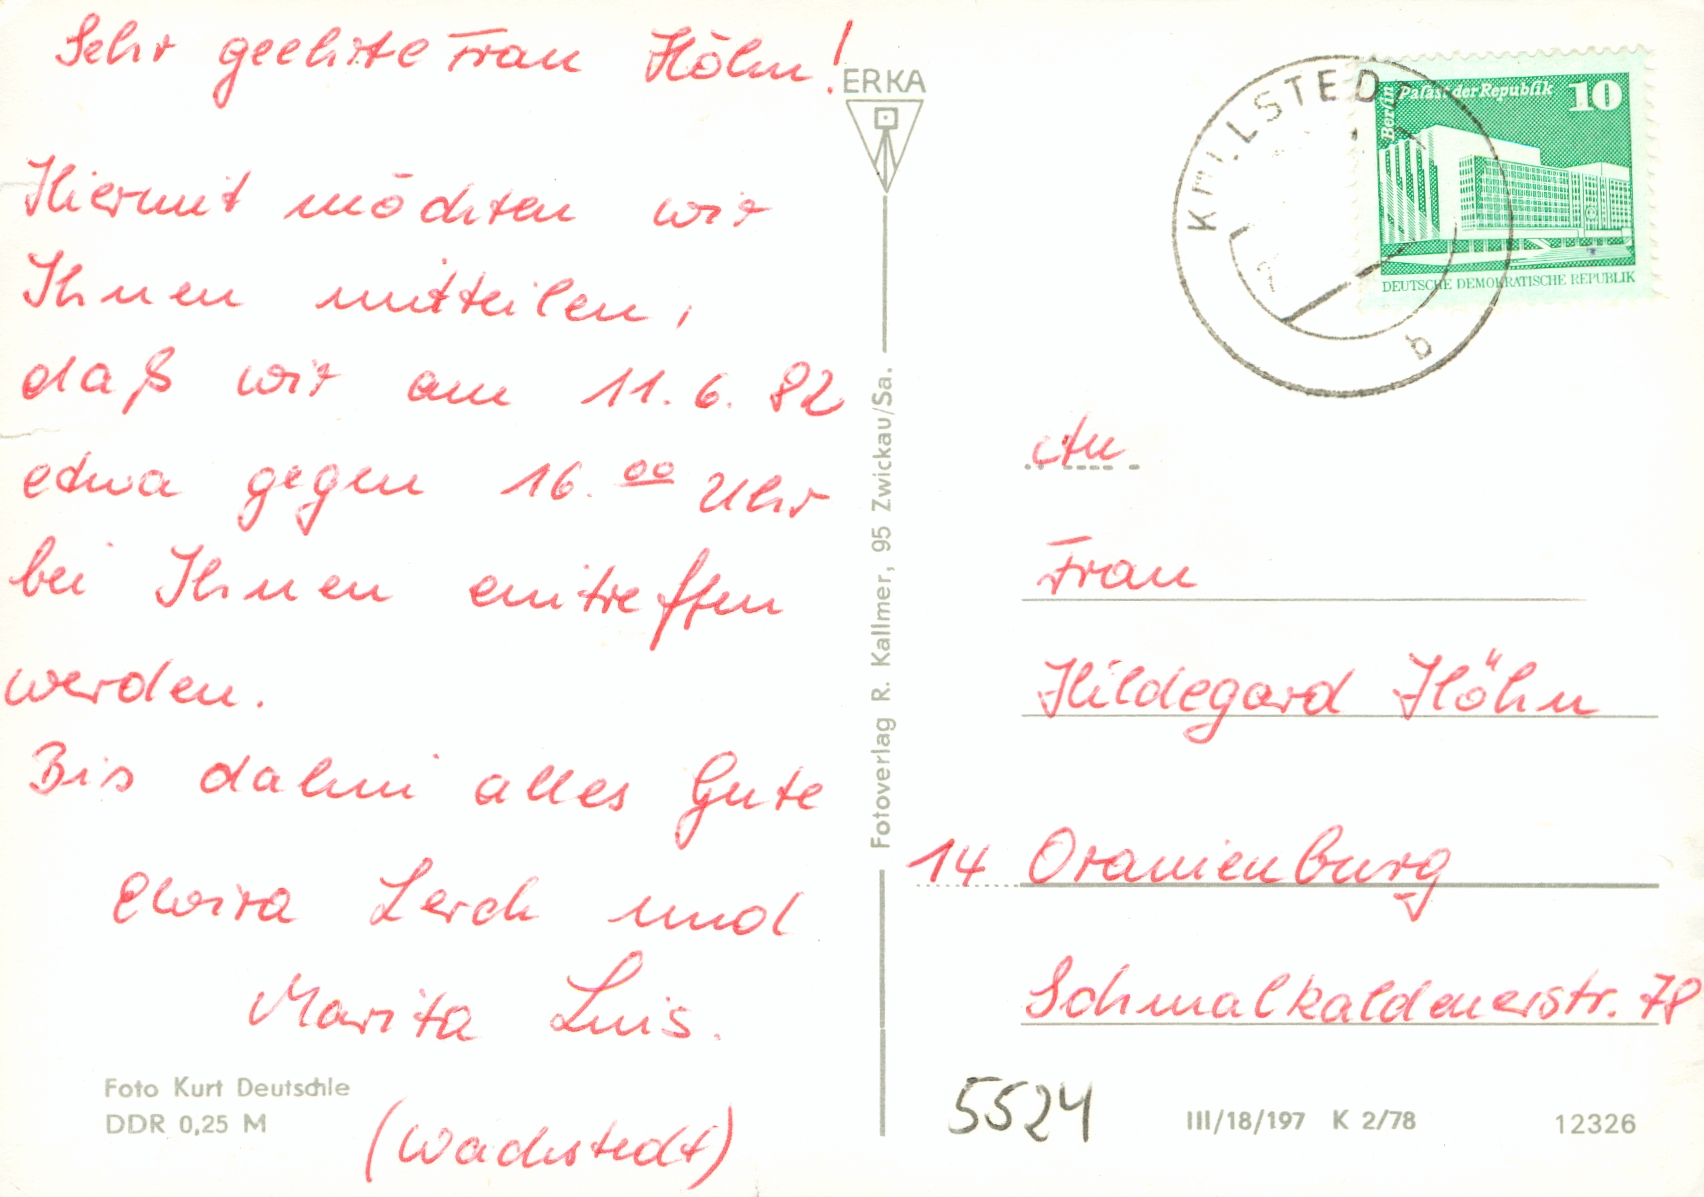 Sehr geehrte Frau Höhn!
Hiermit möchten wir
Ihnen mitteilen,
daß wir am 11.6.82
etwa gegen 16.00 Uhr
bei Ihnen eintreffen
werden.
Bis dahin alles Gute
Elvira Lerch und
Marita Luis.
(Wachstedt)
Foto Kurt Deutschle
DDR 0,25 M
ERKA
Fotoverlag R. Kallmer, 95 Zwickau/Sa.
KÜLLSTEDT
b
Berlin
Palast der Republik
10
DEUTSCHE DEMOKRATISCHE REPUBLIK
An
Frau
Hildegard Höhn
14 Oranienburg
Schmalkaldenerstr. 78
5524
III/18/197 K 2/78
12326